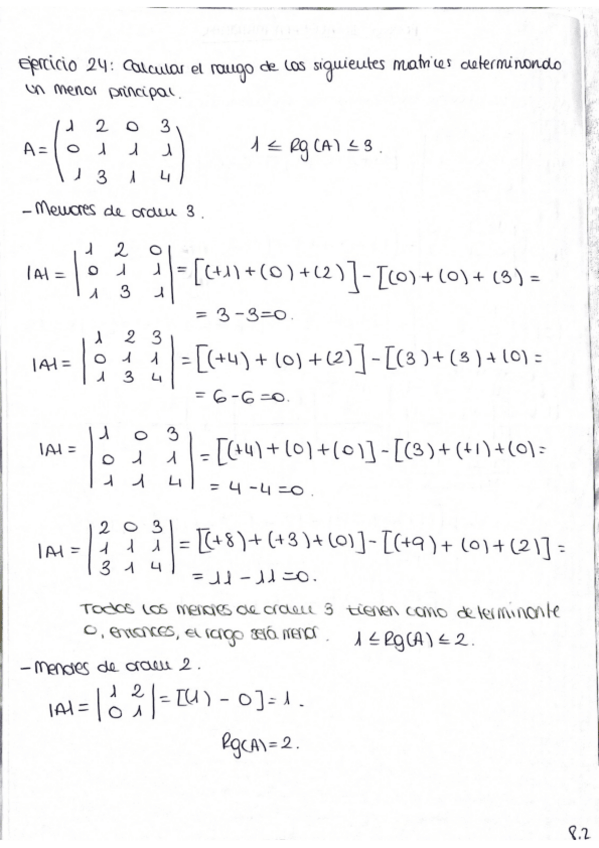 Ejercicio 24: Calcular el rango de las siguientes matrices determinando
un menor principal.
A = ( 1 2 0 3
0 1 1 1
1 3 1 4 )
1 ≤ Rg(A) ≤ 3.
- Menores de orden 3.
|A| = | 1 2 0
0 1 1
1 3 1 | = [(+1)+(0)+(2)] - [(0)+(0)+(3) =
= 3-3=0.
|A| = | 1 2 3
0 1 1
1 3 4 | = [(+4)+(0)+(2)] - [(3)+(3)+(0) =
= 6-6=0.
|A| = | 1 0 3
0 1 1
1 1 4 | = [(+4)+(0)+(0)] - [(3)+(+1)+(0) =
= 4-4=0.
|A| = | 2 0 3
1 1 1
3 1 4 | = [(+8)+(+3)+(0)] - [(+9)+(0)+(2)] =
= 11-11=0.
Todos los menores de orden 3 tienen como determinante
0, entonces, el rango será menor. 1 ≤ Rg(A) ≤ 2.
- Menores de orden 2.
|A| = | 1 2
0 1 | = [(1) - 0] = 1.
Rg(A) = 2.
8.2